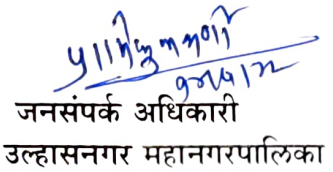 जनसंपर्क अधिकारी
उल्हासनगर महानगरपालिका